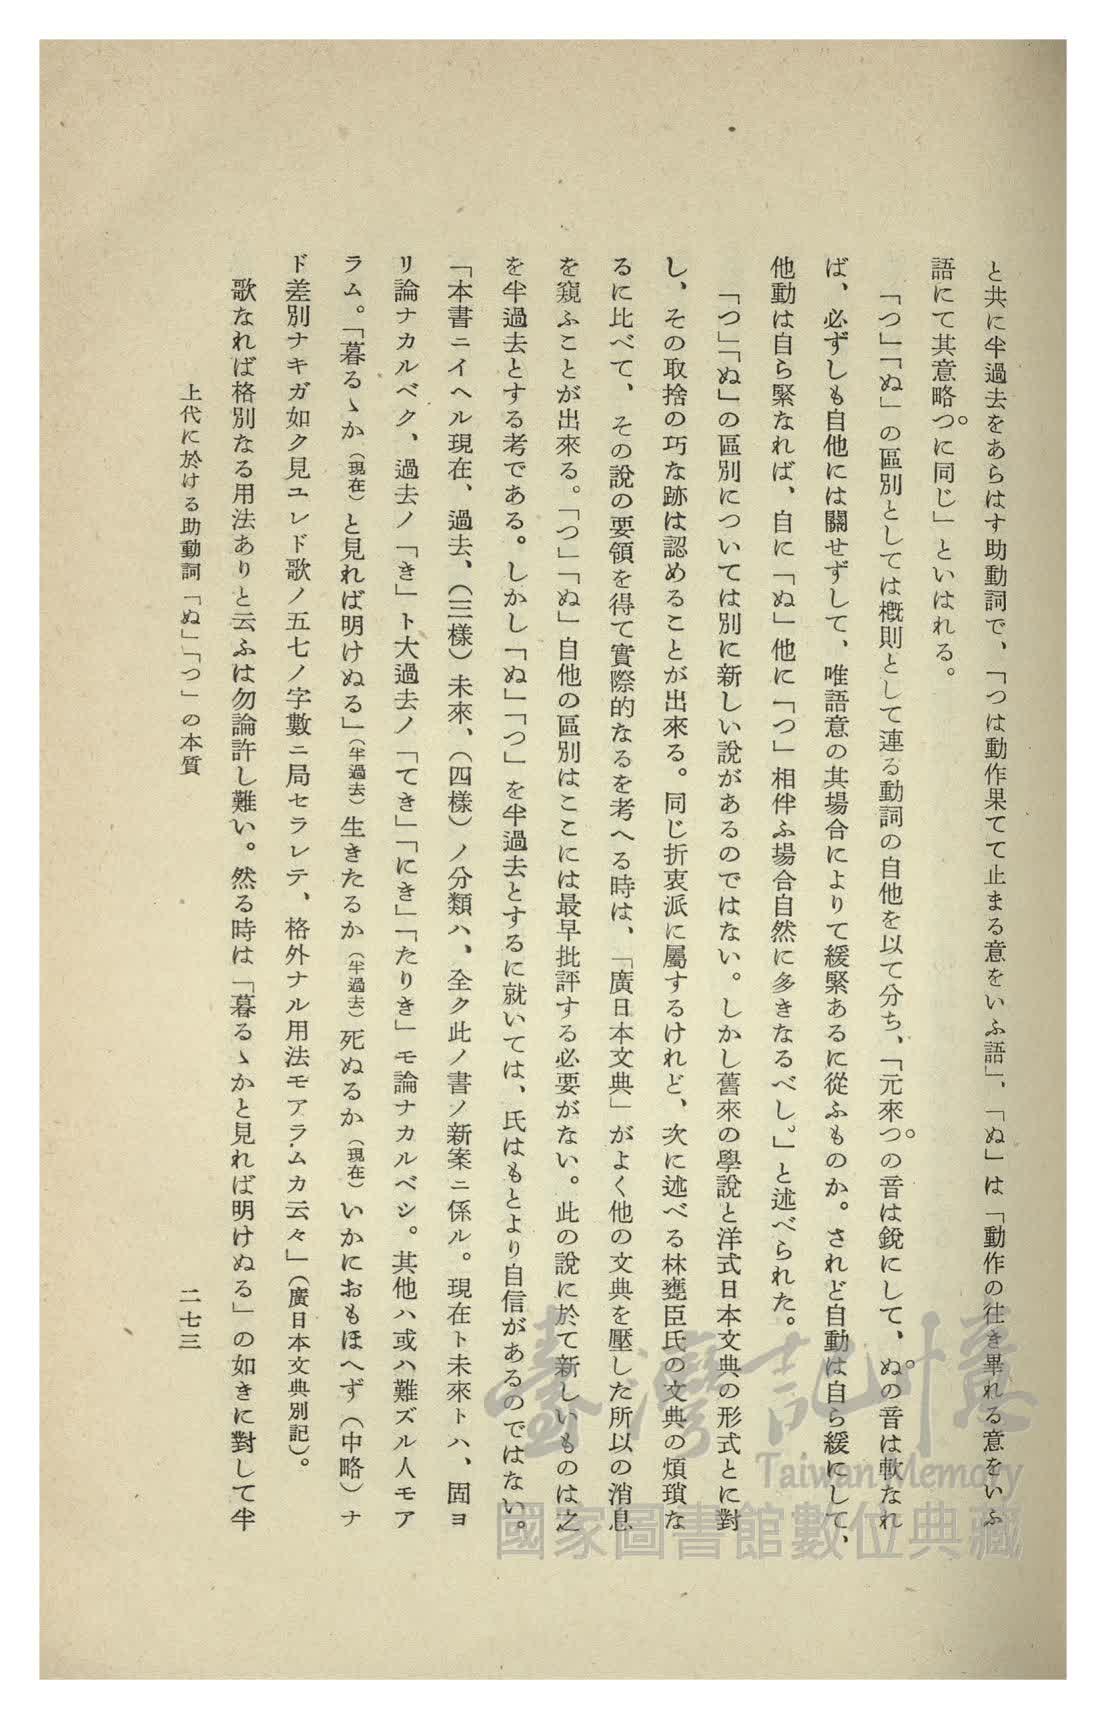 と共に半過去をあらはす助動詞で、「つは動作果てて止まる意をいふ語」、「ぬ」は「動作の往き畢れる意をいふ
語にて其意略つに同じ」といはれる。
「つ」「ぬ」の區別としては概則として連る動詞の自他を以て分ち、「元來つの音は銳にして、ぬの音は軟なれ
ば、必ずしも自他には關せずして、唯語意の其場合によりて緩緊あるに從ふものか。されど自動は自ら緩にして、
他動は自ら緊なれば、自に「ぬ」他に「つ」相伴ふ場合自然に多きなるべし。」と述べられた。
「つ」「ぬ」の區別については別に新しい說があるのではない。しかし舊來の學說と洋式日本文典の形式とに對
し、その取捨の巧な跡は認めることが出來る。同じ折衷派に屬するけれど、次に述べる林甕臣氏の文典の煩瑣な
るに比べて、その說の要領を得て實際的なるを考へる時は、「廣日本文典」がよく他の文典を壓した所以の消息
を窺ふことが出來る。「つ」「ぬ」自他の區別はここには最早批評する必要がない。此の說に於て新しいものは之
を半過去とする考である。しかし「ぬ」「つ」を半過去とするに就いては、氏はもとより自信があるのではない。
「本書ニイヘル現在、過去、（三樣）未來、（四樣）ノ分類ハ、全ク此ノ書ノ新案ニ係ル。現在ト未來トハ、固ヨ
リ論ナカルベク、過去ノ「き」ト大過去ノ「てき」「にき」「たりき」モ論ナカルベシ。其他ハ或ハ難ズル人モア
ラム。「暮るゝか（現在）と見れば明けぬる」（半過去）生きたるか（半過去）死ぬるか（現在）いかにおもほへず（中略）ナ
ド差別ナキガ如ク見ユレド歌ノ五七ノ字數ニ局セラレテ、格外ナル用法モアラムカ云々」（廣日本文典別記）。
歌なれば格別なる用法ありと云ふは勿論許し難い。然る時は「暮るゝかと見れば明けぬる」の如きに對して半
上代に於ける助動詞「ぬ」「つ」の本質
二七三
臺灣記憶
Taiwan Memory
國家圖書館數位典藏